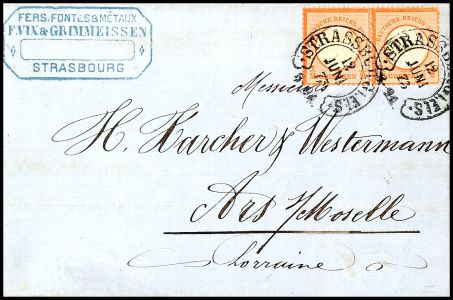 FERS, FONTES & MÉTAUX
F. VIX & GRIMMEISSEN
STRASBOURG
STRASSBURG I. ELS.
12
JUNI
73
STRASSBURG I. ELS.
12
JUNI
73
Messieurs
H. Karcher & Westermann
Ars s/Moselle
Lorraine